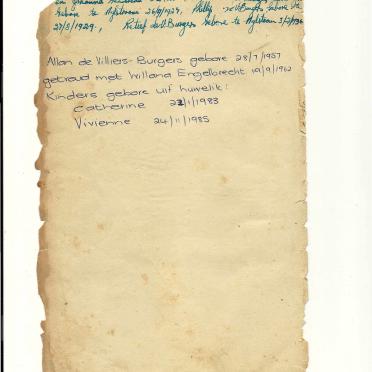 gebore te 26/9/1924, Phillip gebore te
27/5/1929., Retief de V. Burgers gebore te
Allan de Villiers-Burgers gebore 28/7/1957
getroud met Willana Engelbrecht 19/9/1962
Kinders gebore uit huwelik:
Catherine 22/1/1983
Vivienne 24/11/1985